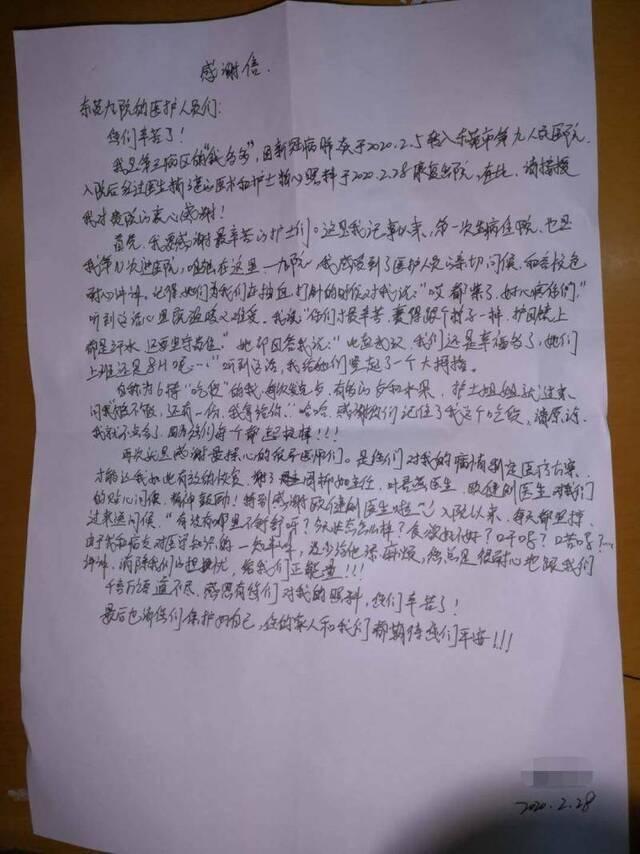 感谢信.
东莞九院的医护人员们:
你们辛苦了!
我是第三病区的“钱多多”,因新冠病肺炎于2020.2.5转入东莞市第九人民医院,
入院后经过医生精湛的医术和护士精心照料于2020.2.28康复出院,在此,请接受
我对贵院的衷心感谢!
首先,我要感谢最辛苦的护士们。这是我记事以来,第一次生病住院,也是
我第N次进医院,唯独在这里—九院,我感受到了医护人员的亲切问候,
耐心讲解。记得她们为我们在抽血,打针的时候对我说:“哎都紫了,好心疼你们,”
听到这话心里既温暖又难受。我说“你们才最辛苦,裹得跟个粽子一样,护目镜上
都是汗水,还要坚守岗位。”她却回答我说:“,我们还是幸福多了,她们
上班还是8H呢…”听到这话,我给她们竖起了一个大拇指。
自称为6楼“吃货”的我,每次发包点,有多的包点和水果,护士姐姐就过来
问我饱不饱,还有一份,我拿给你.”哈哈,感谢你们记住了我这个吃货,请原谅
我就不点名了,因为你们每个都超级棒!!!
再次就是感谢要操心的医生医师们。是你们对我的病情制定医疗方案,
才能让我如此有效的恢复,谢了主任,叶医生,欧健创医生对我们
的贴心问候,精神鼓励!特别感谢欧健创医生,入院以来,每天都坚持
过来巡问候,“有没有哪里不舒服呀?今天状态怎么样?食欲好不好?口干吗?口苦吗?…
由于我和病友对医学知识的一知半解,没少给他添麻烦,他总是很耐心地跟我们
讲解,消除我们的担扰,给我们正能量!!!
千言万语道不尽,感恩有你们对我的照料,你们辛苦了!
最后也请你们保护好自己,你的家人和我们都期待你们平安!!!
2020.2.28